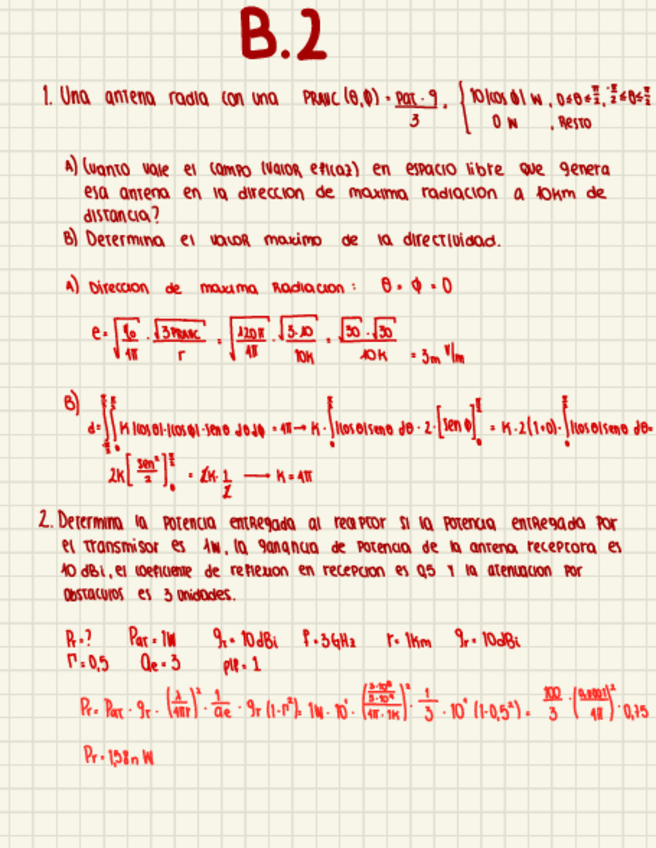 B.2
1. Una antena radia con una PRANC (θ,ϕ) = Pat · g / 3 = { 10|cos ϕ| W , 0≤θ≤π/2, -π/2≤ϕ≤π/2
0 W , Resto
A) Cuanto vale el campo (valor eficaz) en espacio libre que genera
esa antena en la direccion de maxima radiacion a 10km de
distancia?
B) Determina el valor maximo de la directividad.
A) Direccion de maxima Radiacion: θ = ϕ = 0
= √(120π/4π) · √(3·10)/10K = √30 · √30/10K = 3m V/m
B)
2K[sen²/2] = 2K · 1/2 → K = 4π
2. Determina la potencia entregada al receptor si la potencia entregada por
el transmisor es 1W, la ganancia de potencia de la antena receptora es
10 dBi, el coeficiente de reflexion en recepcion es 0,5 y la atenuacion por
obstaculos es 3 unidades.
Pr=? Pat = 1W gt = 10dBi f = 3GHz r = 1km gr = 10dBi
Γ = 0,5 ae = 3 plf = 1
Pr = Pat · gt · (λ/4πr)² · 1/ae · gr (1-Γ²) = 1W · 10¹ · · 1/3 · 10¹ (1-0,5²) = 100/3 · · 0,75
Pr = 1,58n W